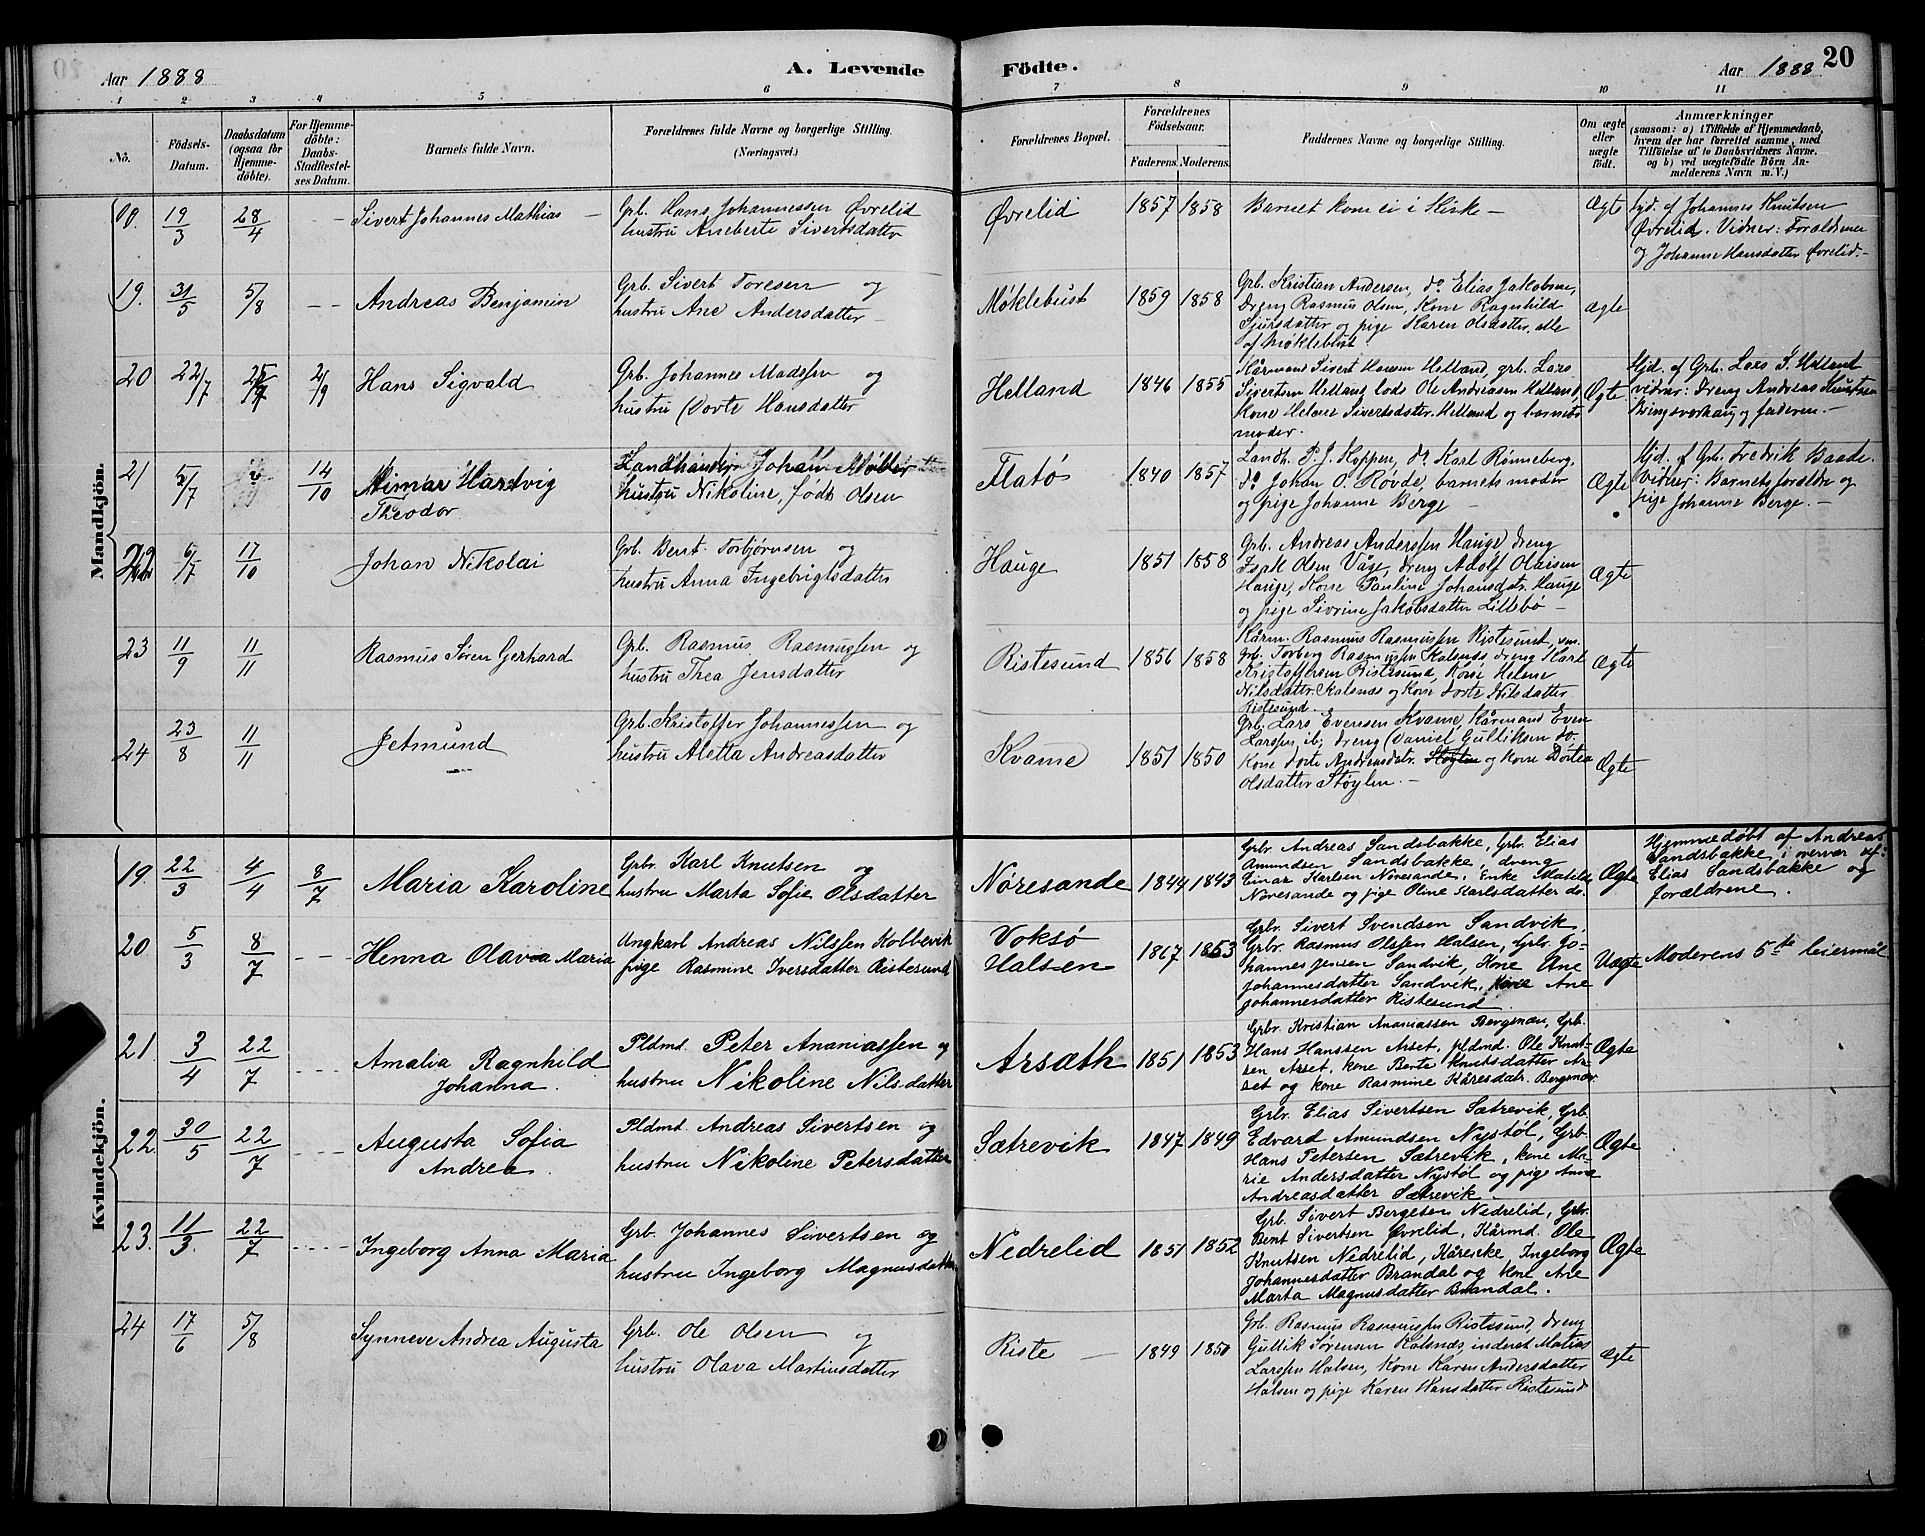 Aar 1888
A. Levende
Födte.
Aar 1888
20
1 2 3 4 5 6 7 8 9 10 11
No.
Födsels-Datum.
Daabsdatum (ogsaa för Hjemme-döbte).
For Hjemme-döbte: Daabs-Stadfæstel-ses Datum.
Barnets fulde Navn.
Forældrenes fulde Navne og borgerlige Stilling. (Næringsvei.)
Forældrenes Bopæl.
Forældrenes Födselsaar.
Faderens. Moderens.
Faddernes Navne og borgerlige Stilling.
Om ægte eller uægte födt.
Anmærkninger
(saasom: a) i Tilfælde af Hjemmedaab,
hvem der har forrettet samme, med
Tilföielse af to Daabsvidners Navne,
og b) ved uægtefödte Börn An-
melderens Navn m. V.)
Mandkjön.
19/3 28/4 - - Sivert Johannes Mathias -
Grb. Hans Johannessen Øvrelid
hustru Aneberte Sivertsdatter
Øvrelid 1857 1858
Barnet kom ei i Kirke -
Ægte
Johannes Knutsen
Øvrelid. Vidner: Forældrene
og Johanne Hansdatter Øvrelid. -
19. 31/5 5/8 - - Andreas Benjamin
Grb. Sivert Toresen og
hustru Ane Andersdatter -
Møklebust 1859 1858
Grb. Kristian Andersen, do Elias Jakobsen,
Dreng Rasmus Olsen, Kone Ragnhild
Sjursdatter og pige Karen Olsdatter, alle
af Møklebust
Ægte
20 22/7 25/7 2/9 Hans Sigvald
Grb. Johannes Madssen og
hustru Dorte Hansdatter
Helland 1846 1855
Kårmand Sivert Hansen Helland, grb. Lars
Sivertsen Helland, lods Ole Andreasen Helland,
Kone Helene Sivertsdater Helland og barnets
moder.
Ægte
Hjd. af Grb. Lars S. Helland
vidner: Dreng Andreas Knutsen
Bringsvorhaug og faderen. -
21 5/7 14/10 Hartvig
Theodor
Landhandler Johan
hustru Nikoline, født Olsen
Flatø 1840 1857
Landh. P. J. Hoppen, do Karl Rønneberg,
do Johan O. Røvde, barnets moder
og pige Johanne Berge -
Ægte
Hjd. af Grb. Fredrik Baade.
Vidner: Barnets forældre og
pige Johanne Berge. -
22 6/7 17/10 Johan Nikolai
Grb. Bernt Torbjørnsen og
hustru Anna Ingebrigtsdatter
Hauge 1851 1858
Grb. Andreas Anderssen Hauge, dreng
Isak Olsen Våge, dreng Adolf Olaisen
Hauge, Kone Pauline Johansdatr. Hauge
og pige Sivrine Jakobsdatter Lillebø -
Ægte
23 11/9 11/11 Rasmus Søren Gerhard
Grb. Rasmus Rasmussen og
hustru Thea Jensdatter
Ristesund 1856 1858
Kårm. Rasmus Rasmussen Ristesund,
Grb. Torberg Rasmussen Kalsnes, dreng Karl
Kristoffersen Ristesund, Kone Helene
Nilsdatter Kalsnes og Kone Dorte Nilsdatter
Ristesund
Ægte
24 23/8 11/11 Jetmund
Grb. Kristoffer Johannessen og
hustru Aletta Andreasdatter
Kvame 1851 1850
Grb. Lars Evensen Kvame, Kårmand Even
Larssen, ib; dreng Daniel Gulliksen do.
Kone Dorte Andreasdatr. Støylen og Kone Dortea
Olsdatter Støylen. -
Ægte
Kvindekjön.
19. 22/3 4/4 8/7 Maria Karoline
Grbr. Karl Knutsen og
hustru Marta Sofie Olsdatter
Nøresande 1844 1843
Grbr. Andreas Sandsbakke, Grb. Elias
Amundsen Sandsbakke, dreng
Einar Karlsen Nøresande, Enke Matilde
Nøresande og pige Oline Karlsdatter do.
Ægte
Hjemmedøbt af Andreas
Sandsbakke, i overvær af
Elias Sandsbakke og
forældrene.
20 5/3 8/7 - - - Henna Olava Maria
Ungkarl Andreas Nilssen Kobbevik
pige Rasmine Iversdatter Ristesund
Voksø
Halsen 1867 1853
Grbr. Sivert Svendsen Sandvik,
Grbr. Rasmus Olssen Halsen, Grb. Jo-
hannes Jensen Sandvik, Kone Ane
Johannesdatter Sandvik, Kone Ane
Johannesdatter Ristesund
Uægte
Moderens 5te leiermål
21. 3/4 22/7 - - - - Amalia Ragnhild
Johanna.
Pldmd. Peter Ananiassen og
hustru Nikoline Nilsdatter
Arsæth 1851 1853
Grbr. Kristian Ananiassen Bergsnæs, Grb.
Hans Hanssen Arset, pldmd. Ole Knut-
sen Arset, kone Berte Knutsdatter Ar-
set og kone Rasmine Kåresdatr. Bergsnæs.
Ægte
22 30/5 22/7 - - - - Augusta Sofia
Andrea.
Pldmd. Andreas Sivertsen og
hustru Nikoline Petersdatter
Sætrevik 1847 1849
Grbr. Elias Sivertsen Sætrevik, Grb.
Edvard Amundsen Nystøl, Grb.
Hans Petersen Sætrevik, kone Ma-
rie Andersdatter Nystøl og pige Anna
Andreasdatter Sætrevik
Ægte
23. 11/3. 22/7 - - - - Ingeborg Anna Maria
Grb. Johannes Sivertsen og
hustru Ingeborg Magnusdatter
Nedrelid 1851 1852
Grb. Sivert Bergesen Nedrelid, Grb.
Bent Sivertsen Øvrelid, Kårmd. Ole
Knutsen Nedrelid, Kåreenke, Ingeborg
Johannesdatter Brandal og kone Ane
Marta Magnusdatter Brandal.
Ægte
24 17/6 5/8 Synneve Andrea Augusta
Grb. Ole Olsen og
hustru Olava Martinsdatter
Riste - 1849 1850
Grb. Rasmus Rasmussen Ristesund, dreng
Gullik Sørensen Kalsnes, inderst Matias
Larssen Halsen, Kone Karen Andersdatter
Halsen og pige Karen Hansdatter Ristesund
Ægte